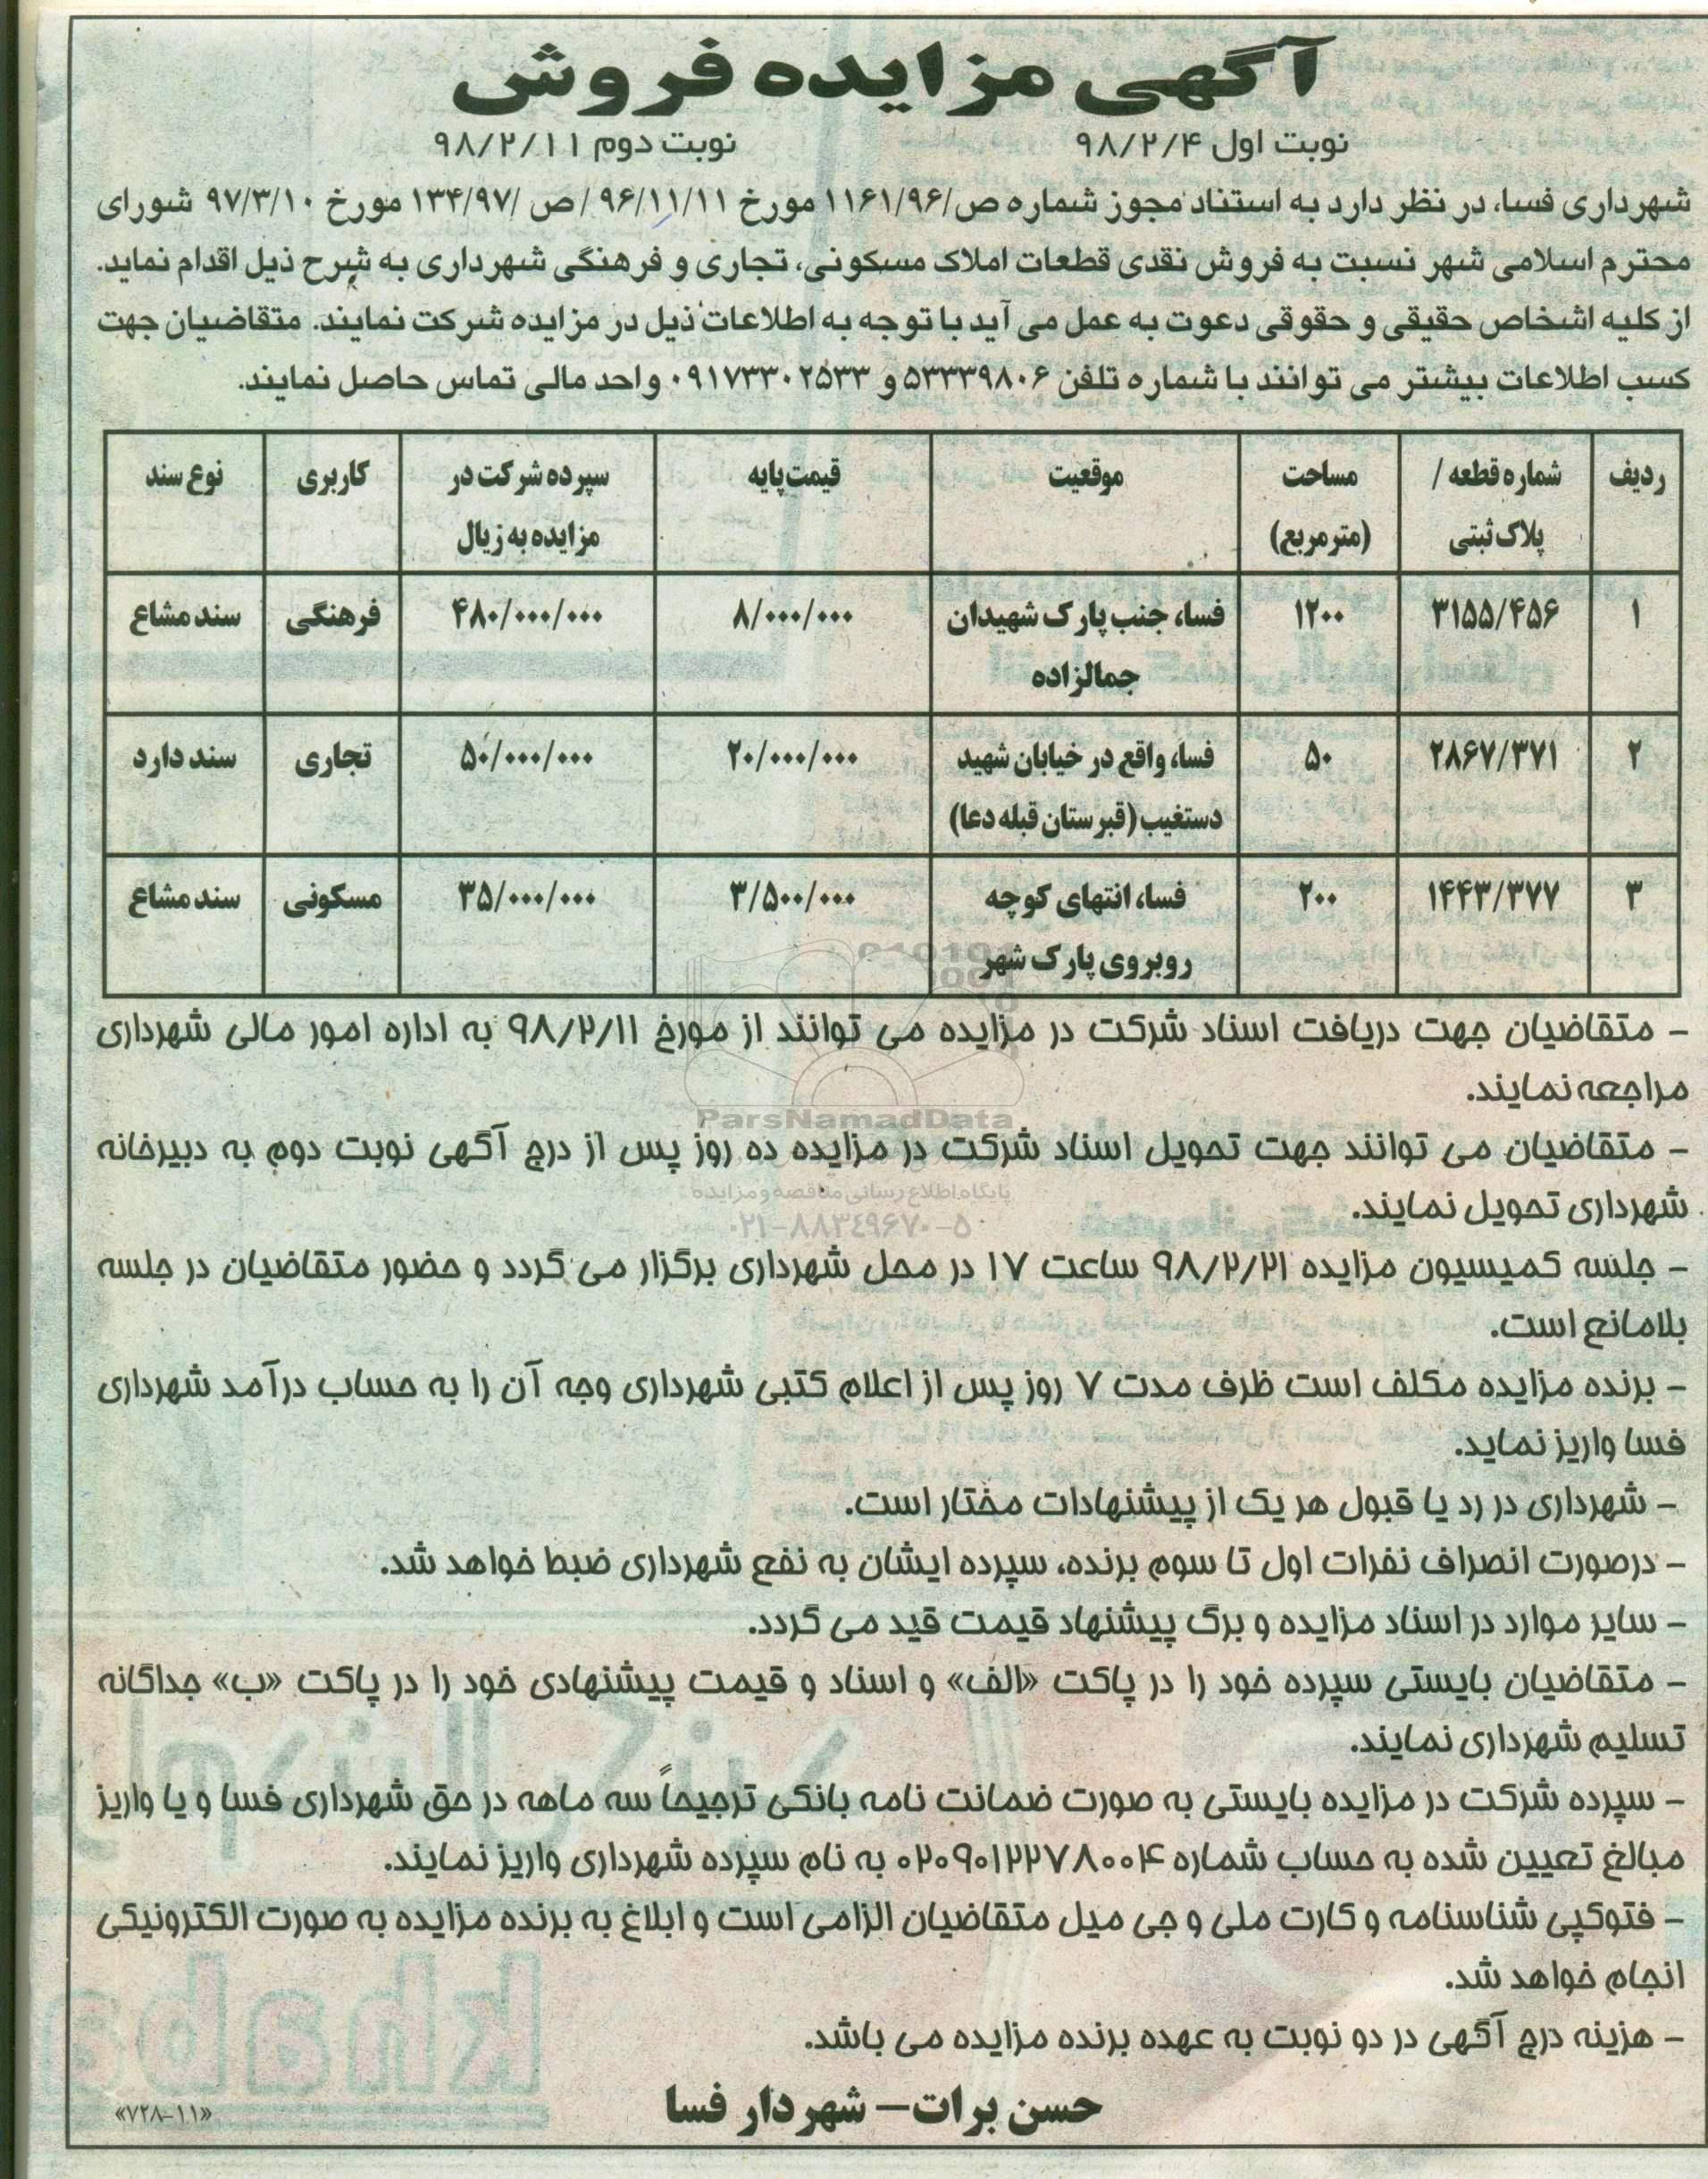 آگهی مزایده فروش
نوبت اول ۹۸/۲/۴ نوبت دوم ۹۸/۲/۱۱
شهرداری فسا، در نظر دارد به استناد مجوز شماره ص/۱۱۶۱/۹۶ مورخ ۹۶/۱۱/۱۱ /ص /۱۳۴/۹۷ مورخ ۹۷/۳/۱۰ شورای
محترم اسلامی شهر نسبت به فروش نقدی قطعات املاک مسکونی، تجاری و فرهنگی شهرداری به شرح ذیل اقدام نماید.
از کلیه اشخاص حقیقی و حقوقی دعوت به عمل می آید با توجه به اطلاعات ذیل در مزایده شرکت نمایند. متقاضیان جهت
کسب اطلاعات بیشتر می توانند با شماره تلفن ۵۳۳۳۹۸۰۶ و ۰۹۱۷۳۳۰۲۵۳۳ واحد مالی تماس حاصل نمایند.
ردیف شماره قطعه / مساحت موقعیت قیمت پایه سپرده شرکت در کاربری نوع سند
پلاک ثبتی (متر مربع) مزایده به زیال
۱ ۳۱۵۵/۴۵۶ ۱۲۰۰ فسا، جنب پارک شهیدان ۸/۰۰۰/۰۰۰ ۴۸۰/۰۰۰/۰۰۰ فرهنگی سند مشاع
جمالزاده
۲ ۲۸۶۷/۳۷۱ ۵۰ فسا، واقع در خیابان شهید ۲۰/۰۰۰/۰۰۰ ۵۰/۰۰۰/۰۰۰ تجاری سند دارد
دستغیب (قبرستان قبله دعا)
۳ ۱۴۴۳/۳۷۷ ۲۰۰ فسا، انتهای کوچه ۳/۵۰۰/۰۰۰ ۳۵/۰۰۰/۰۰۰ مسکونی سند مشاع
روبروی پارک شهر
- متقاضیان جهت دریافت اسناد شرکت در مزایده می توانند از مورخ ۹۸/۲/۱۱ به اداره امور مالی شهرداری
مراجعه نمایند.
ParsNamadData
- متقاضیان می توانند جهت تحویل اسناد شرکت در مزایده ده روز پس از درج آگهی نوبت دوم به دبیرخانه
پایگاه اطلاع رسانی مناقصه و مزایده
شهرداری تحویل نمایند.
۰۲۱-۸۸۳۴۹۶۷۰-۵
- جلسه کمیسیون مزایده ۹۸/۲/۲۱ ساعت ۱۷ در محل شهرداری برگزار می گردد و حضور متقاضیان در جلسه
بلامانع است.
- برنده مزایده مکلف است ظرف مدت ۷ روز پس از اعلام کتبی شهرداری وجه آن را به حساب درآمد شهرداری
فسا واریز نماید.
- شهرداری در رد یا قبول هر یک از پیشنهادات مختار است.
- درصورت انصراف نفرات اول تا سوم برنده، سپرده ایشان به نفع شهرداری ضبط خواهد شد.
- سایر موارد در اسناد مزایده و برگ پیشنهاد قیمت قید می گردد.
- متقاضیان بایستی سپرده خود را در پاکت «الف» و اسناد و قیمت پیشنهادی خود را در پاکت «ب» جداگانه
تسلیم شهرداری نمایند.
- سپرده شرکت در مزایده بایستی به صورت ضمانت نامه بانکی ترجیحاً سه ماهه در حق شهرداری فسا و یا واریز
مبالغ تعیین شده به حساب شماره ۰۲۰۹۰۱۲۲۷۸۰۰۴ به نام سپرده شهرداری واریز نمایند.
- فتوکپی شناسنامه و کارت ملی و جی میل متقاضیان الزامی است و ابلاغ به برنده مزایده به صورت الکترونیکی
انجام خواهد شد.
- هزینه درج آگهی در دو نوبت به عهده برنده مزایده می باشد.
حسن برات– شهردار فسا
«۷۲۸-۱۱»